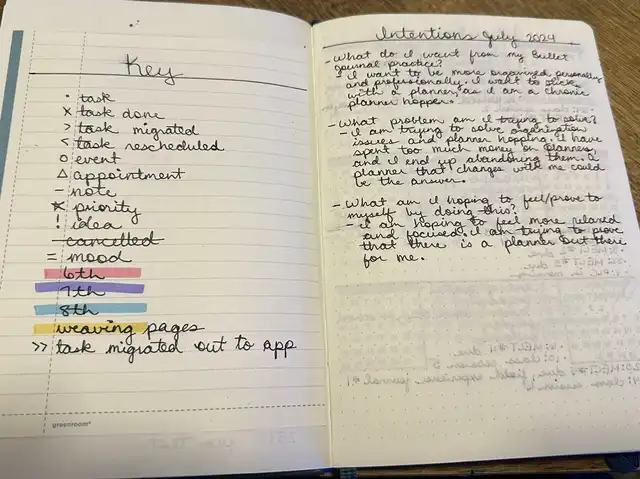 Key
• task
x task done
> task migrated
< task rescheduled
o event
△ appointment
- note
* priority
! idea
cancelled
= mood
6th
7th
8th
weaving pages
>> task migrated out to app
greenroom®
Intentions July 2024
- What do I want from my Bullet
journal practice?
- I want to be more organized personally
and professionally. I want to stick
with a planner, as I am a chronic
planner hopper.
- What problem am I trying to solve?
- I am trying to solve organization
issues and planner hopping. I have
spent too much money on planners
and I end up abandoning them. A
planner that changes with me could
be the answer.
- What am I hoping to feel/prove to
myself by doing this?
- I am hoping to feel more relaxed
and focused. I am trying to prove
that there is a planner out there
for me.